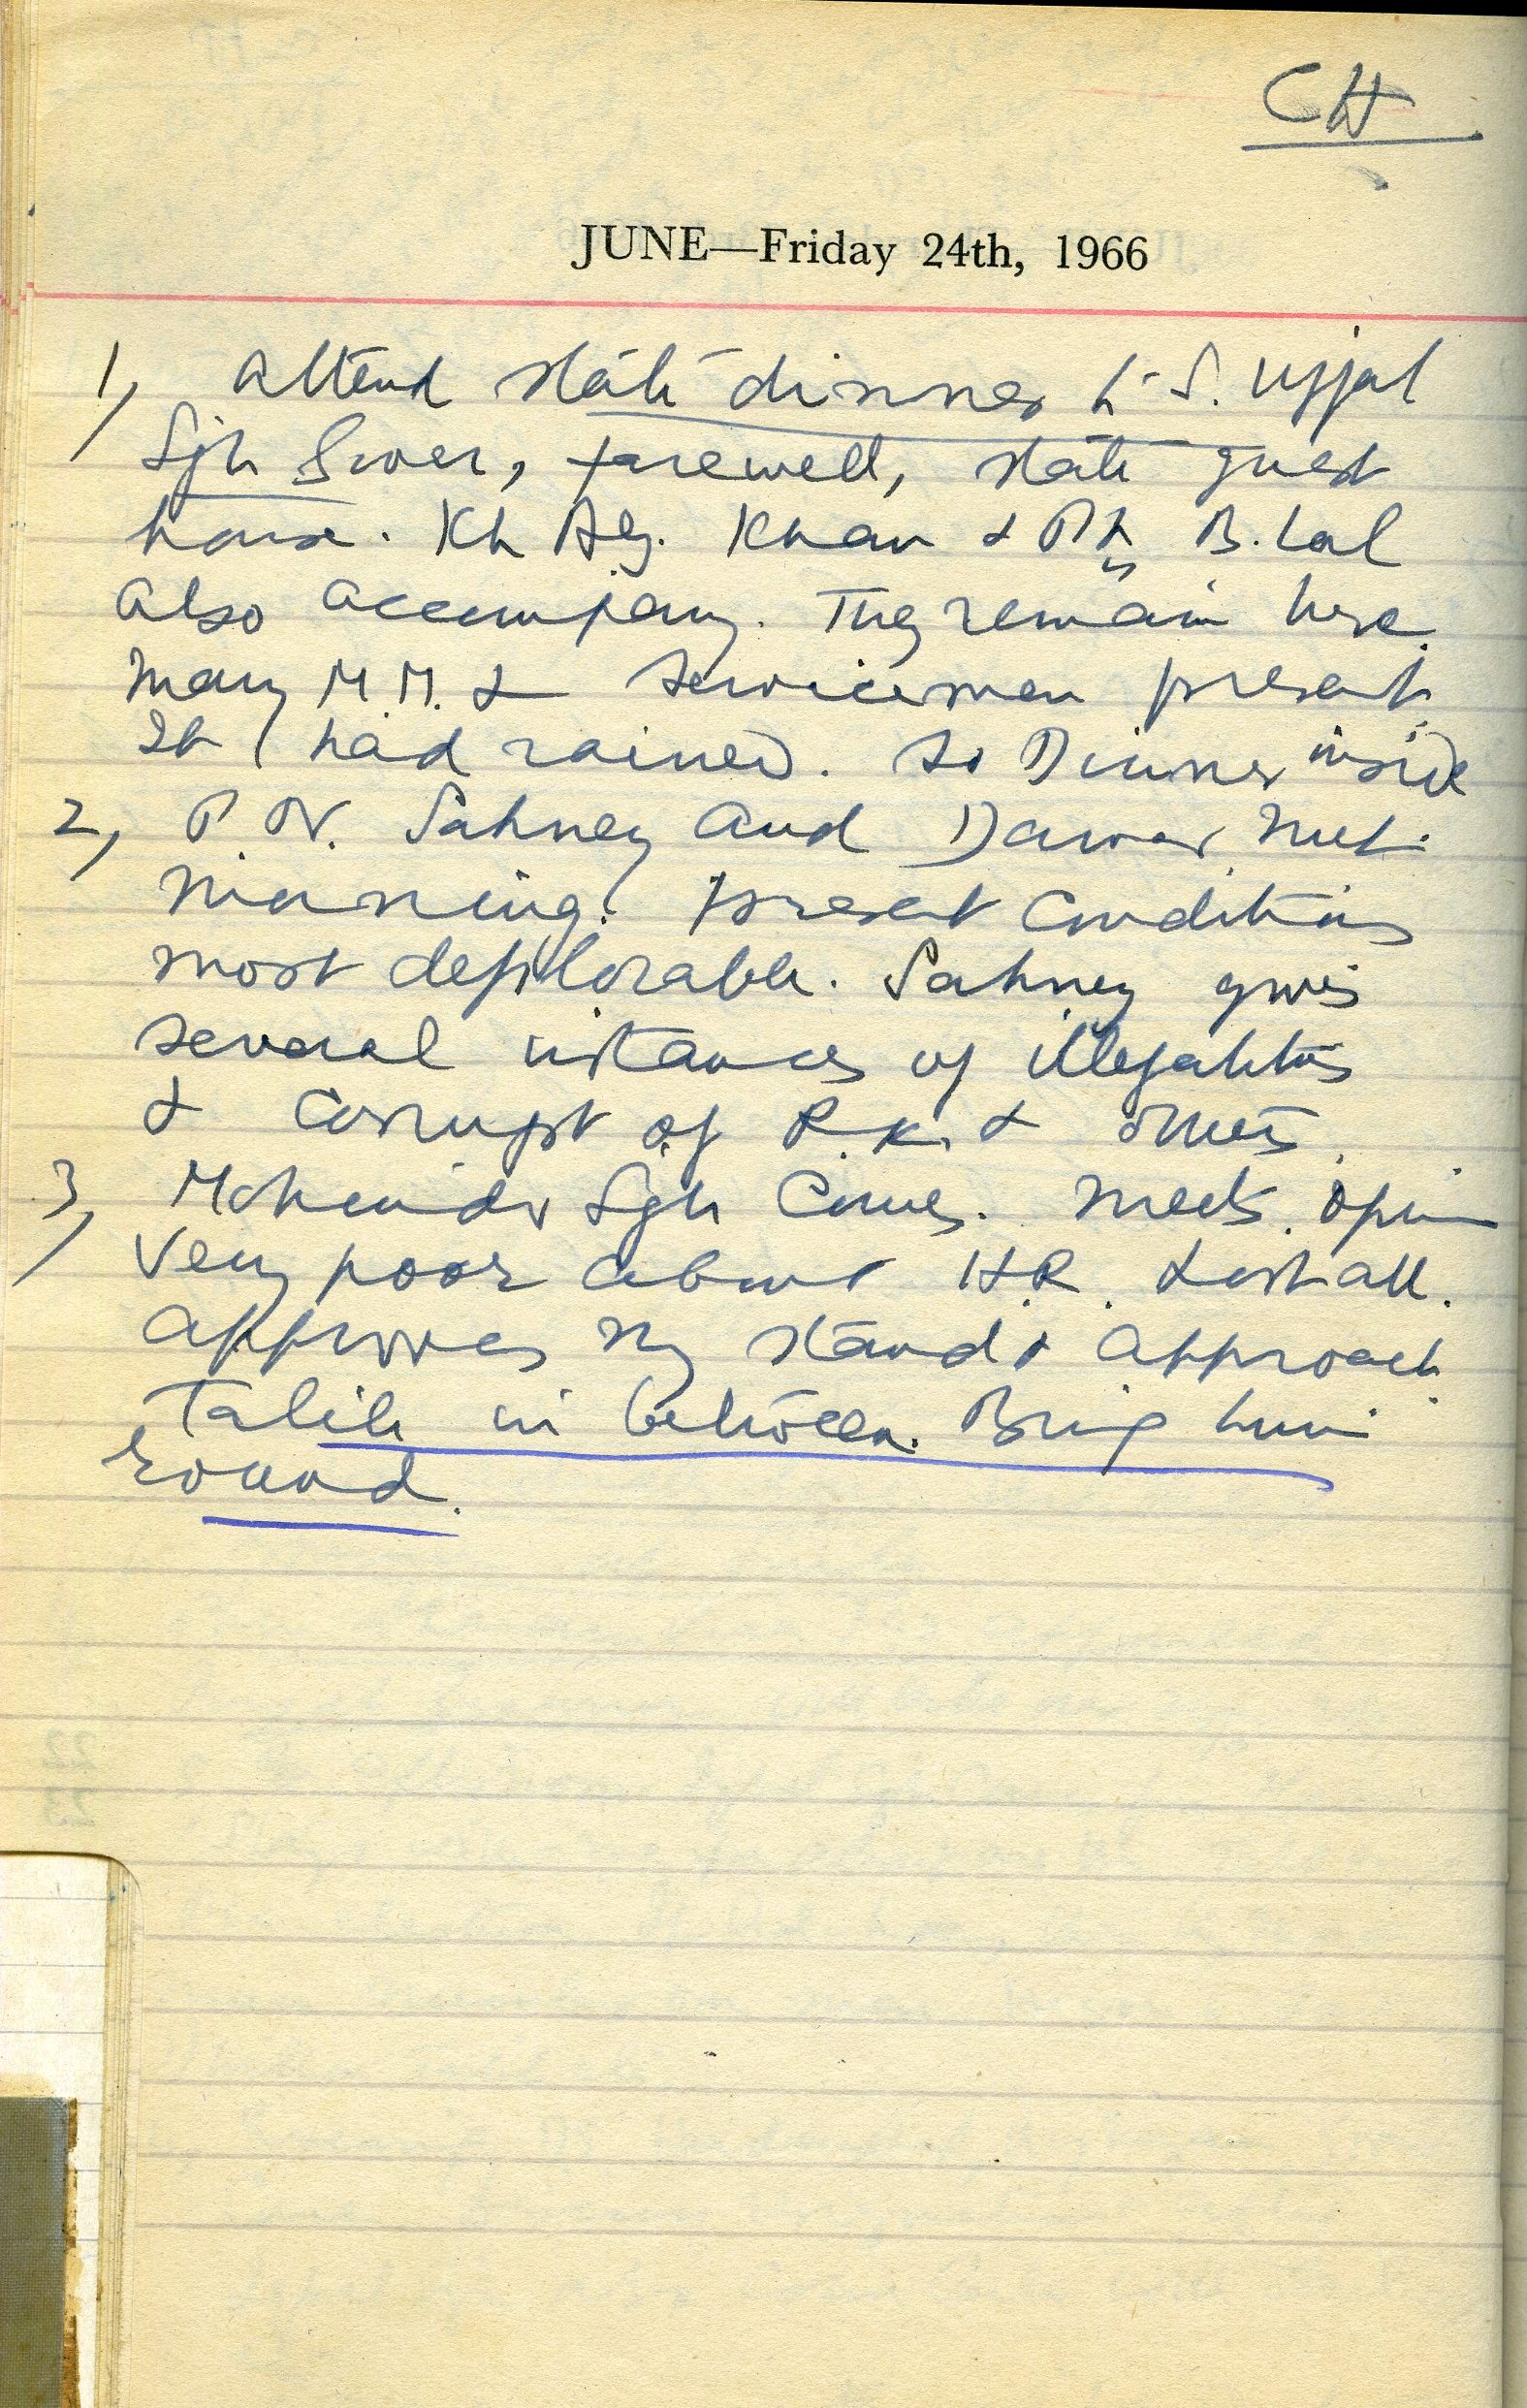 CH
JUNE—Friday 24th, 1966
1, Attend state dinner to S. Ujjal
Sgh Gover, farewell, state guest
house. Kh Alg. Khan & Pt B. Lal
also accompany. They remain here
Many M.M. & Servicemen present
It had rained. So Dinner inside
2, P. N. Sahney and Dawar meet
morning. present conditions
most deplorable. Sahney gives
several instances of illegalities
& corrupt of R.K. & others.
3, Mohinder Sgh comes. meets. opin
very poor about H.R. & est all.
Approves my stand & approach
Talib in between. Bring him
round.
22
23